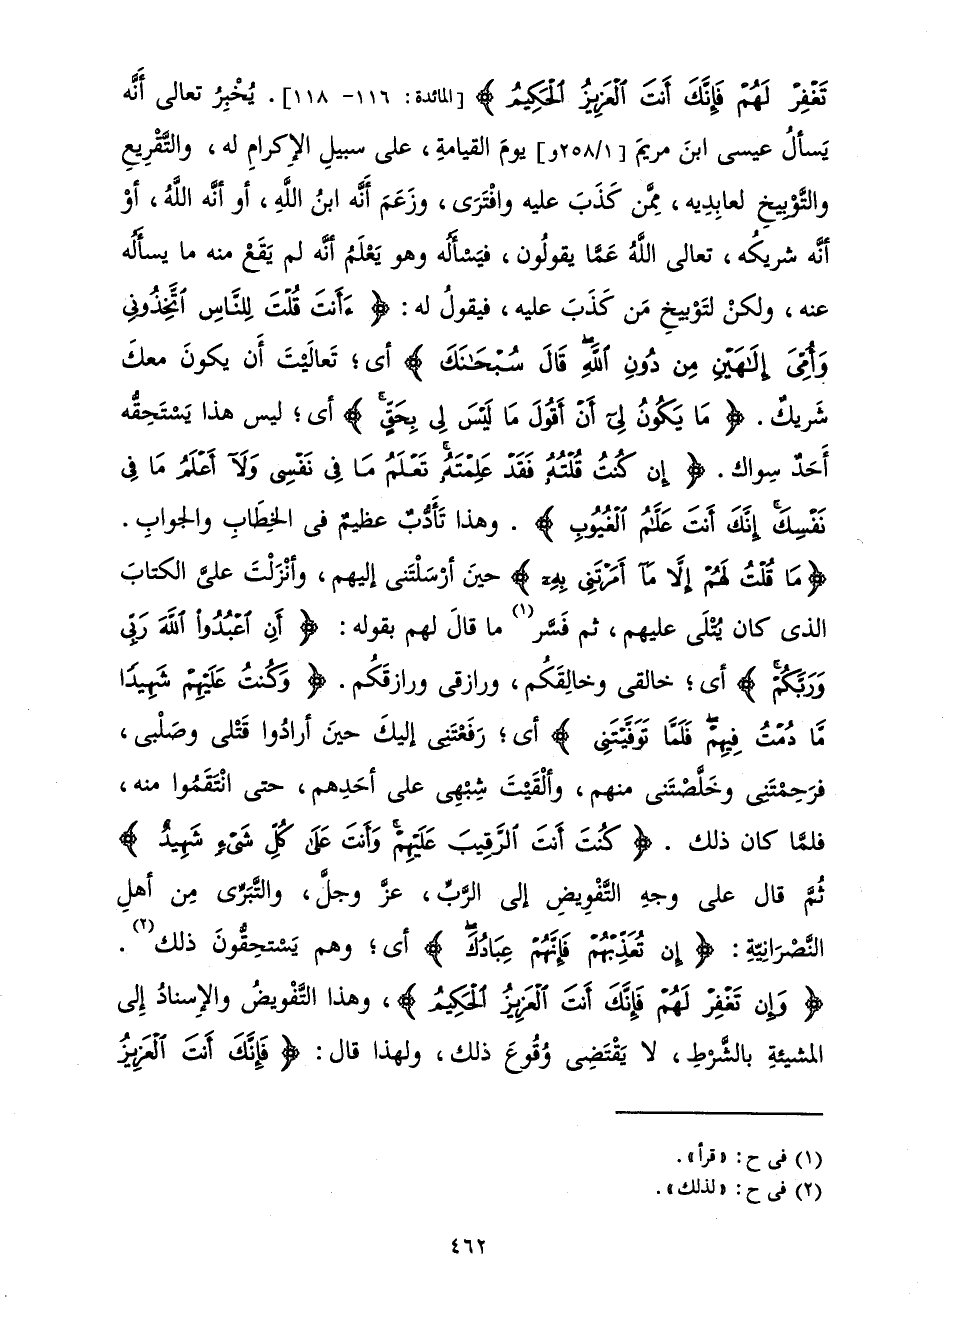 تَغْفِرْ لَهُمْ فَإِنَّكَ أَنتَ الْعَزِيزُ الْحَكِيمُ ﴾ [المائدة: ١١٦- ١١٨]. يُخْبِرُ تعالى أَنَّه
يَسألُ عيسى ابنَ مريمَ [٢٥٨/١و] يومَ القيامةِ، على سبيلِ الإكرامِ له، والتَّقْريعِ
والتَّوْبيخِ لعابِديه، مِمَّن كَذَبَ عليه وافْتَرَى، وزَعَمَ أَنَّه ابنُ اللَّهِ، أو أنَّه اللَّهُ، أوْ
أنَّه شريكُه، تعالى اللَّهُ عَمَّا يقولُون، فيَسْأَلُه وهو يَعْلَمُ أنَّه لم يَقَعْ منه ما يسألُه
عنه، ولكنْ لتَوْبيخِ مَن كَذَبَ عليه، فيقولُ له: ﴿ ءَأَنتَ قُلْتَ لِلنَّاسِ اتَّخِذُونِي
وَأُمِّيَ إِلَٰهَيْنِ مِن دُونِ اللَّهِ ۖ قَالَ سُبْحَٰنَكَ ﴾ أى؛ تَعالَيْتَ أن يكونَ معكَ
شَريكٌ. ﴿ مَا يَكُونُ لِيٓ أَنْ أَقُولَ مَا لَيْسَ لِي بِحَقٍّ ۚ ﴾ أى؛ ليس هذا يَسْتَحِقُّه
أَحَدٌ سِواك. ﴿ إِن كُنتُ قُلْتُهُۥ فَقَدْ عَلِمْتَهُۥ ۚ تَعْلَمُ مَا فِي نَفْسِي وَلَآ أَعْلَمُ مَا فِي
نَفْسِكَ ۚ إِنَّكَ أَنتَ عَلَّٰمُ الْغُيُوبِ ﴾. وهذا تَأَدُّبٌ عظيمٌ فى الخِطَابِ والجوابِ.
﴿ مَا قُلْتُ لَهُمْ إِلَّا مَآ أَمَرْتَنِي بِهِۦٓ ﴾ حينَ أرْسَلْتَنى إليهم، وأنْزَلْتَ علىَّ الكتابَ
الذى كان يُتْلَى عليهم، ثم فَسَّر(١) ما قالَ لهم بقوله: ﴿ أَنِ اعْبُدُوا۟ اللَّهَ رَبِّي
وَرَبَّكُمْ ۚ ﴾ أى؛ خالقى وخالِقَكُم، ورازقى ورازقَكُم. ﴿ وَكُنتُ عَلَيْهِمْ شَهِيدًا
مَّا دُمْتُ فِيهِمْ ۖ فَلَمَّا تَوَفَّيْتَنِي ﴾ أى؛ رَفَعْتَنِى إليكَ حينَ أرادُوا قَتْلى وصَلْبى،
فرَحِمْتَنِى وخَلَّصْتَنى منهم، وألْقَيْتَ شِبْهِى على أحَدِهم، حتى انْتَقَمُوا منه،
فلمَّا كان ذلك. ﴿ كُنتَ أَنتَ الرَّقِيبَ عَلَيْهِمْ ۚ وَأَنتَ عَلَىٰ كُلِّ شَيْءٍ شَهِيدٌ ﴾
ثُمَّ قال على وجهِ التَّفْويضِ إلى الرَّبِّ، عزَّ وجلَّ، والتَّبَرِّى مِن أهلِ
النَّصْرَانِيَّةِ: ﴿ إِن تُعَذِّبْهُمْ فَإِنَّهُمْ عِبَادُكَ ۖ ﴾ أى؛ وهم يَسْتحِقُّونَ ذلك(٢).
﴿ وَإِن تَغْفِرْ لَهُمْ فَإِنَّكَ أَنتَ الْعَزِيزُ الْحَكِيمُ ﴾، وهذا التَّفْويضُ والإسنادُ إلى
المشيئةِ بالشَّرْطِ، لا يَقْتَضِى وُقُوعَ ذلك، ولهذا قال: ﴿ فَإِنَّكَ أَنتَ الْعَزِيزُ
(١) فى ح: «قرأ».
(٢) فى ح: «لذلك».
٤٦٢